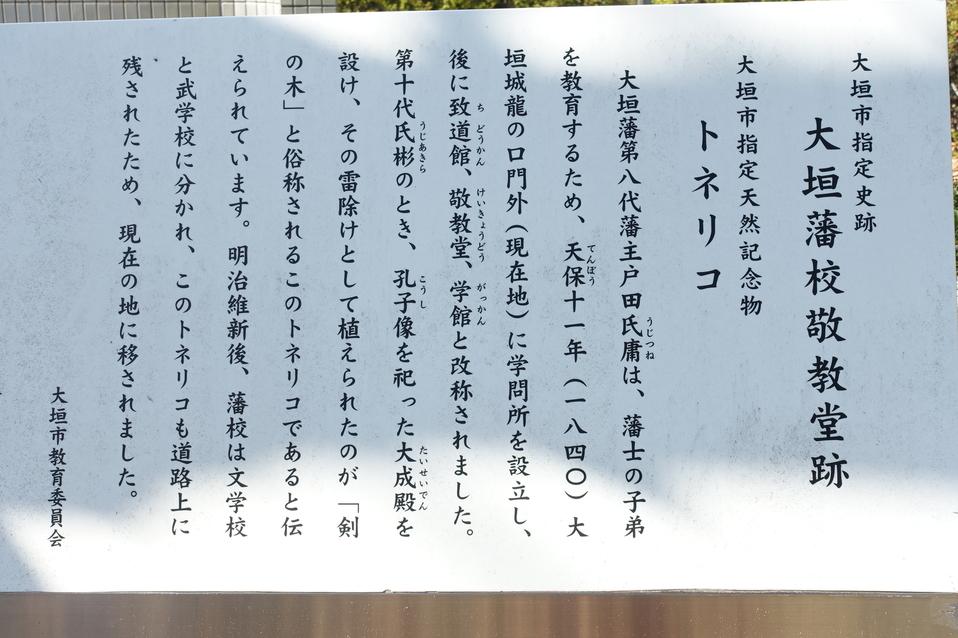 大垣市指定史跡
大垣藩校敬教堂跡
大垣市指定天然記念物
トネリコ
大垣藩第八代藩主戸田氏庸は、藩士の子弟
を教育するため、天保十一年(一八四〇)大
垣城龍の口門外(現在地)に学問所を設立し、
後に致道館、敬教堂、学館と改称されました。
第十代氏彬のとき、孔子像を祀った大成殿を
設け、その雷除けとして植えられたのが「剣
の木」と俗称されるこのトネリコであると伝
えられています。明治維新後、藩校は文学校
と武学校に分かれ、このトネリコも道路上に
残されたため、現在の地に移されました。
大垣市教育委員会
うじつね
てんぽう
ち どうかん
けいきょうどう
がっかん
うじあきら
こうし
たいせいでん